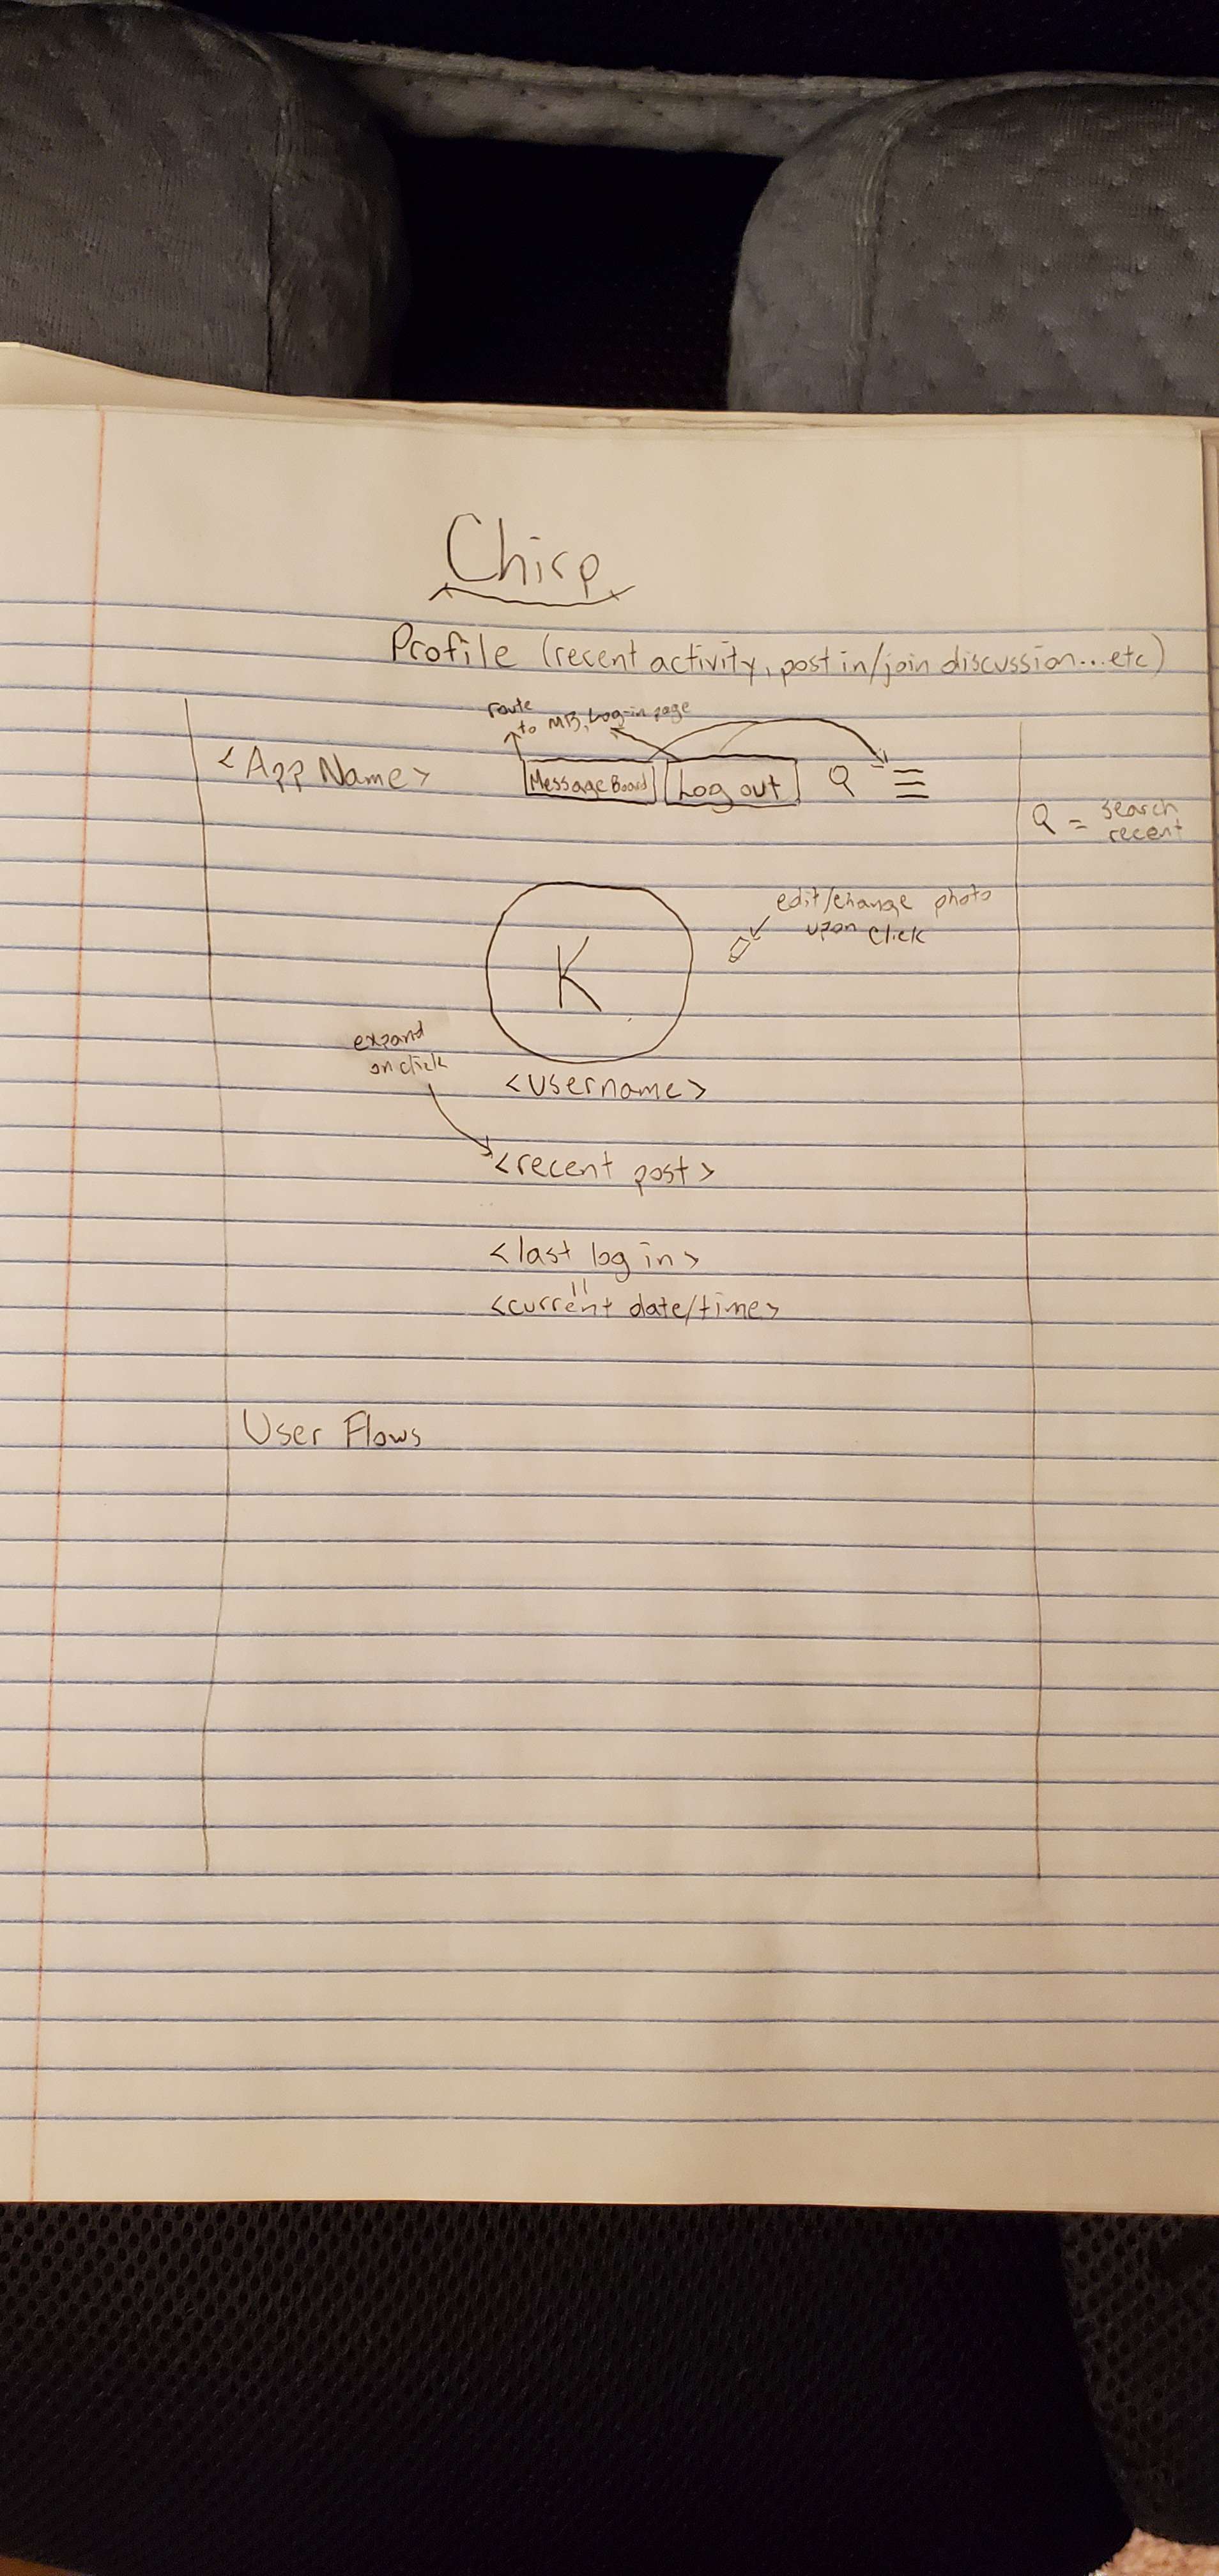 Chirp
Profile (recent activity, post in/join discussion...etc)
route
to MB, Log-in page
<App Name>
Message Board
Log out
Q = search
recent
edit/change photo
upon click
K
expand
on click
<username>
<recent post>
<last log in>
=
<current date/time>
User Flows